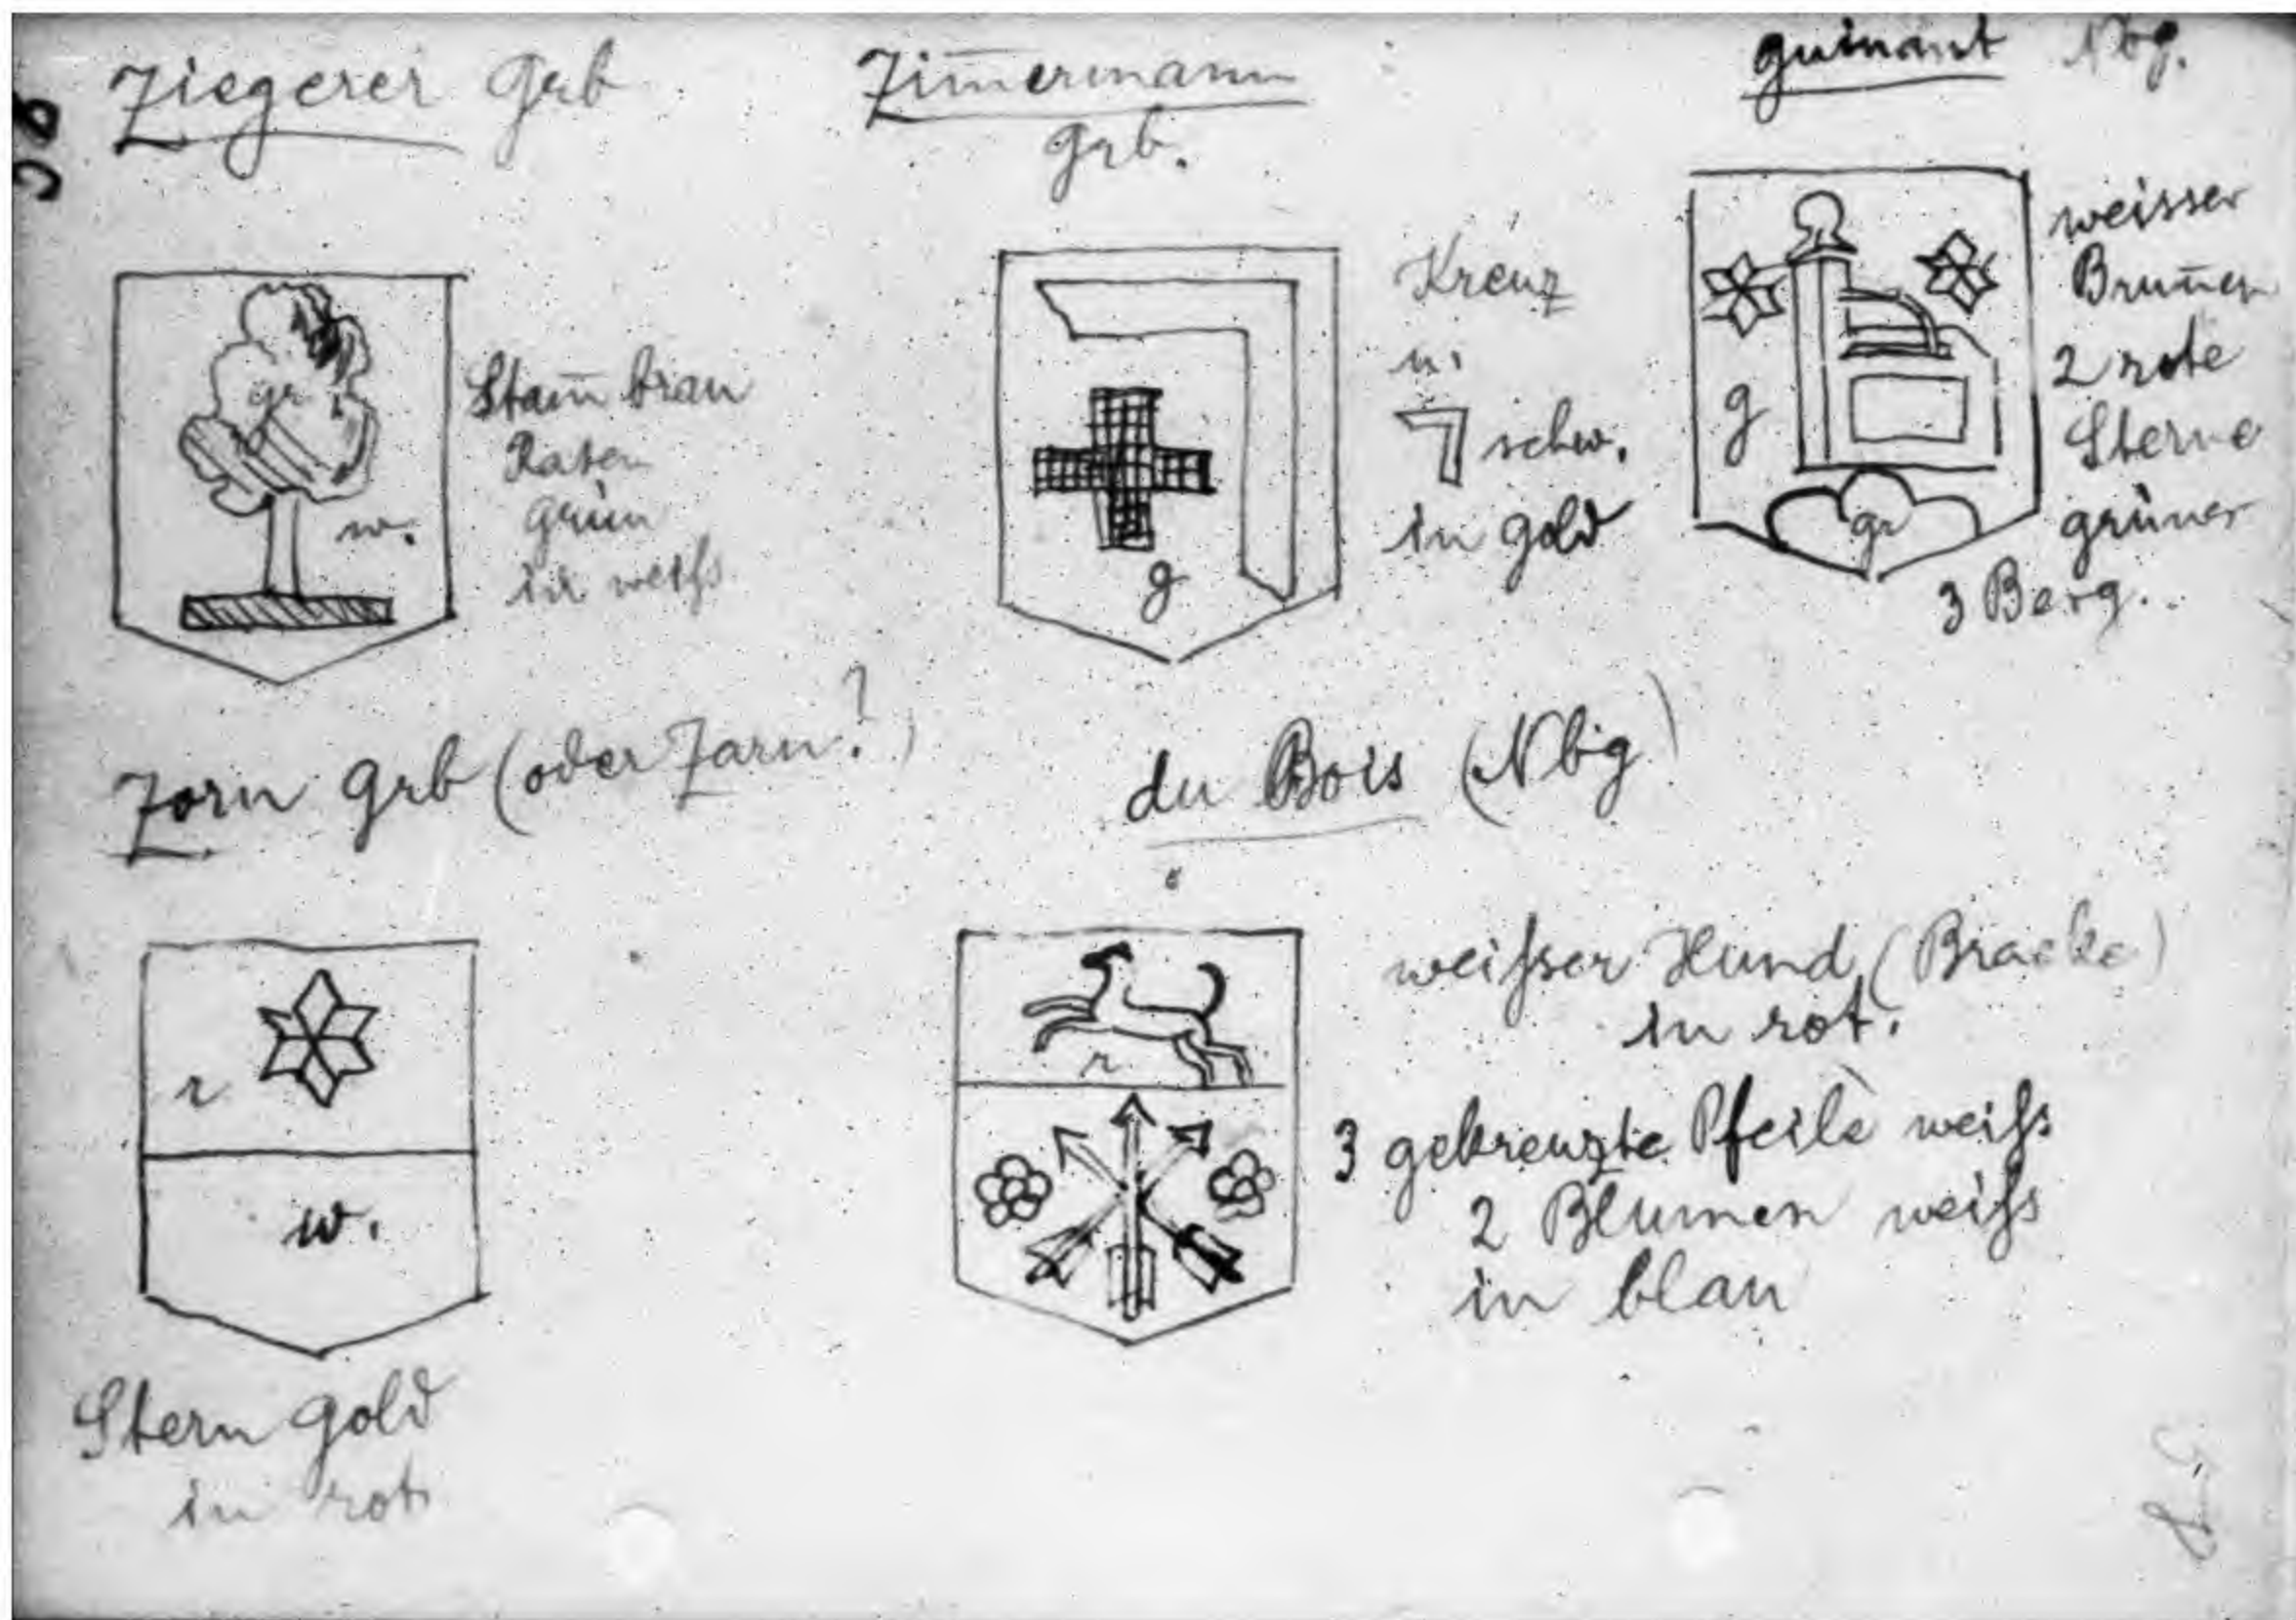 98
Ziegerer Grb
gr
w.
Stam̄ braun
Rasen
grün
in weiſs
Zim̄ermann
Grb.
g
Kreuz
u.
schw.
in gold
Nbg.
g
gr
weisser
Brun̄en
2 rote
Sterne
grüner
3 Berg.
Zorn Grb (oder Zarn?)
r
w.
Stern gold
in rot
du Bois (Nbg)
r
weiſser Hund (Bracke)
in rot.
3 gekreuzte Pfeile weiſs
2 Blumen weiſs
in blau